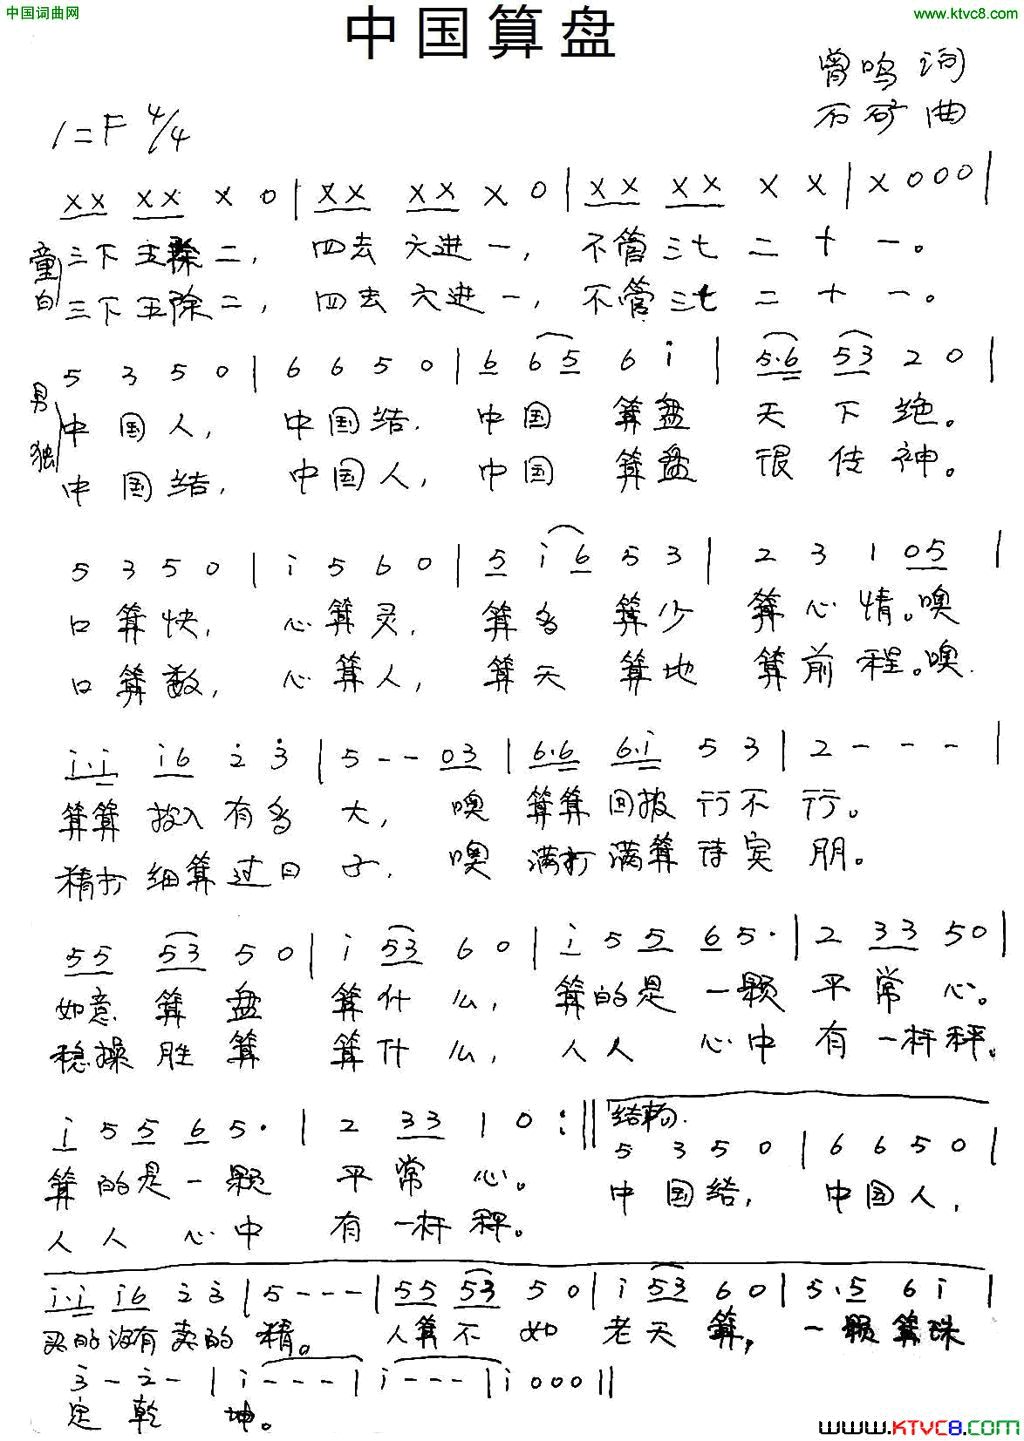 中国词曲网
www.ktvc8.com
中国算盘
曾鸣 词
石矿 曲
1=F 4/4
XX XX X 0 | XX XX X 0 | XX XX X X | X 0 0 0 |
童白 三下五除二， 四去六进一， 不管三七二十一。
三下五除二， 四去六进一， 不管三七二十一。
5 3 5 0 | 6 6 5 0 | 6 6 5 6 i | 5·6 53 2 0 |
男独 中国人， 中国结， 中国算盘天下绝。
中国结， 中国人， 中国算盘很传神。
5 3 5 0 | i 5 6 0 | 5 i 6 5 3 | 2 3 1 05 |
口算快， 心算灵， 算多算少算心情。噢
口算数， 心算人， 算天算地算前程。噢
i·i i6 2 3 | 5 - - 03 | 6·6 6·i 5 3 | 2 - - - |
算算投入有多大， 噢算算回报行不行。
精打细算过日子， 噢满打满算待宾朋。
55 53 5 0 | i 53 6 0 | i 5 5 6 5· | 2 33 5 0 |
如意算盘算什么， 算的是一颗平常心。
稳操胜算算什么， 人人心中有一杆秤。
i 5 5 6 5· | 2 33 1 0 :|| 结构
5 3 5 0 | 6 6 5 0 |
算的是一颗平常心。 中国结， 中国人，
人人心中有一杆秤。
i·i i6 2 3 | 5 - - - | 55 53 5 0 | i 53 6 0 | 5·5 6 i |
买的没有卖的精。 人算不如老天算， 一颗算珠
3 - 2 - | i - - - | i - - - | i 0 0 0 ||
定乾坤。
www.KTVC8.com